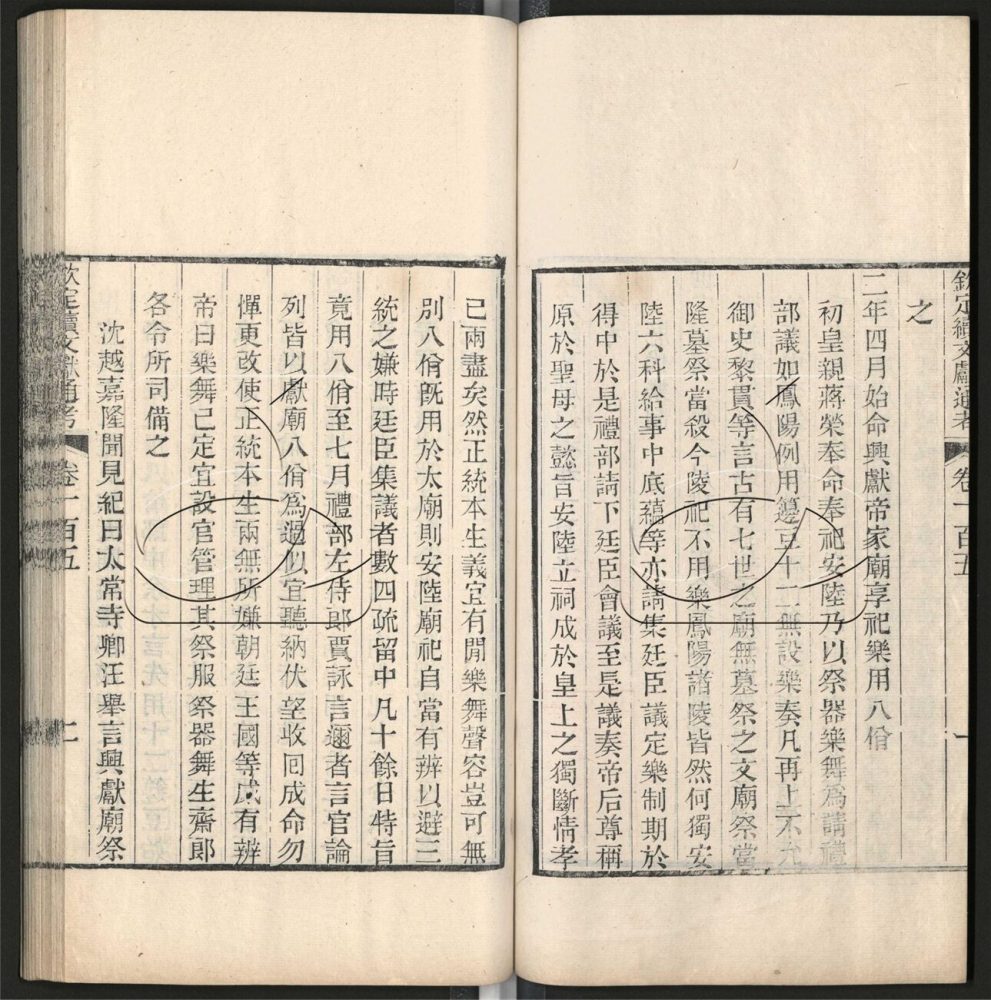 欽定續文獻通考 卷一百五
之
二年四月始命興獻帝家廟享祀樂用八佾
初皇親蔣榮奉命奉祀安陸乃以祭器樂舞為請禮
部議如鳳陽例用籩豆十二無設樂奏凡再上不允
御史黎貫等言古有七世之廟無墓祭之文廟祭當
隆墓祭當殺今陵祀不用樂鳳陽諸陵皆然何獨安
陸六科給事中底蘊等亦請集廷臣議定樂制期於
得中於是禮部請下廷臣會議至是議奏帝后尊稱
原於聖母之懿旨安陸立祠成於皇上之獨斷情孝
已兩盡矣然正統本生義宜有閒樂舞聲容豈可無
別八佾旣用於太廟則安陸廟祀自當有辨以避二
統之嫌時廷臣集議者數四疏留中凡十餘日特旨
竟用八佾至七月禮部左侍郎賈詠言邇者言官論
列皆以獻廟八佾爲過似宜聽納伏望收囘成命勿
憚更改使正統本生兩無所嫌朝廷王國等威有辨
帝曰樂舞已定宜設官管理其祭服祭器舞生齋郎
各令所司備之
沈越嘉隆聞見紀曰太常寺卿汪舉言興獻廟祭
欽定續文獻通考 卷一百五 七